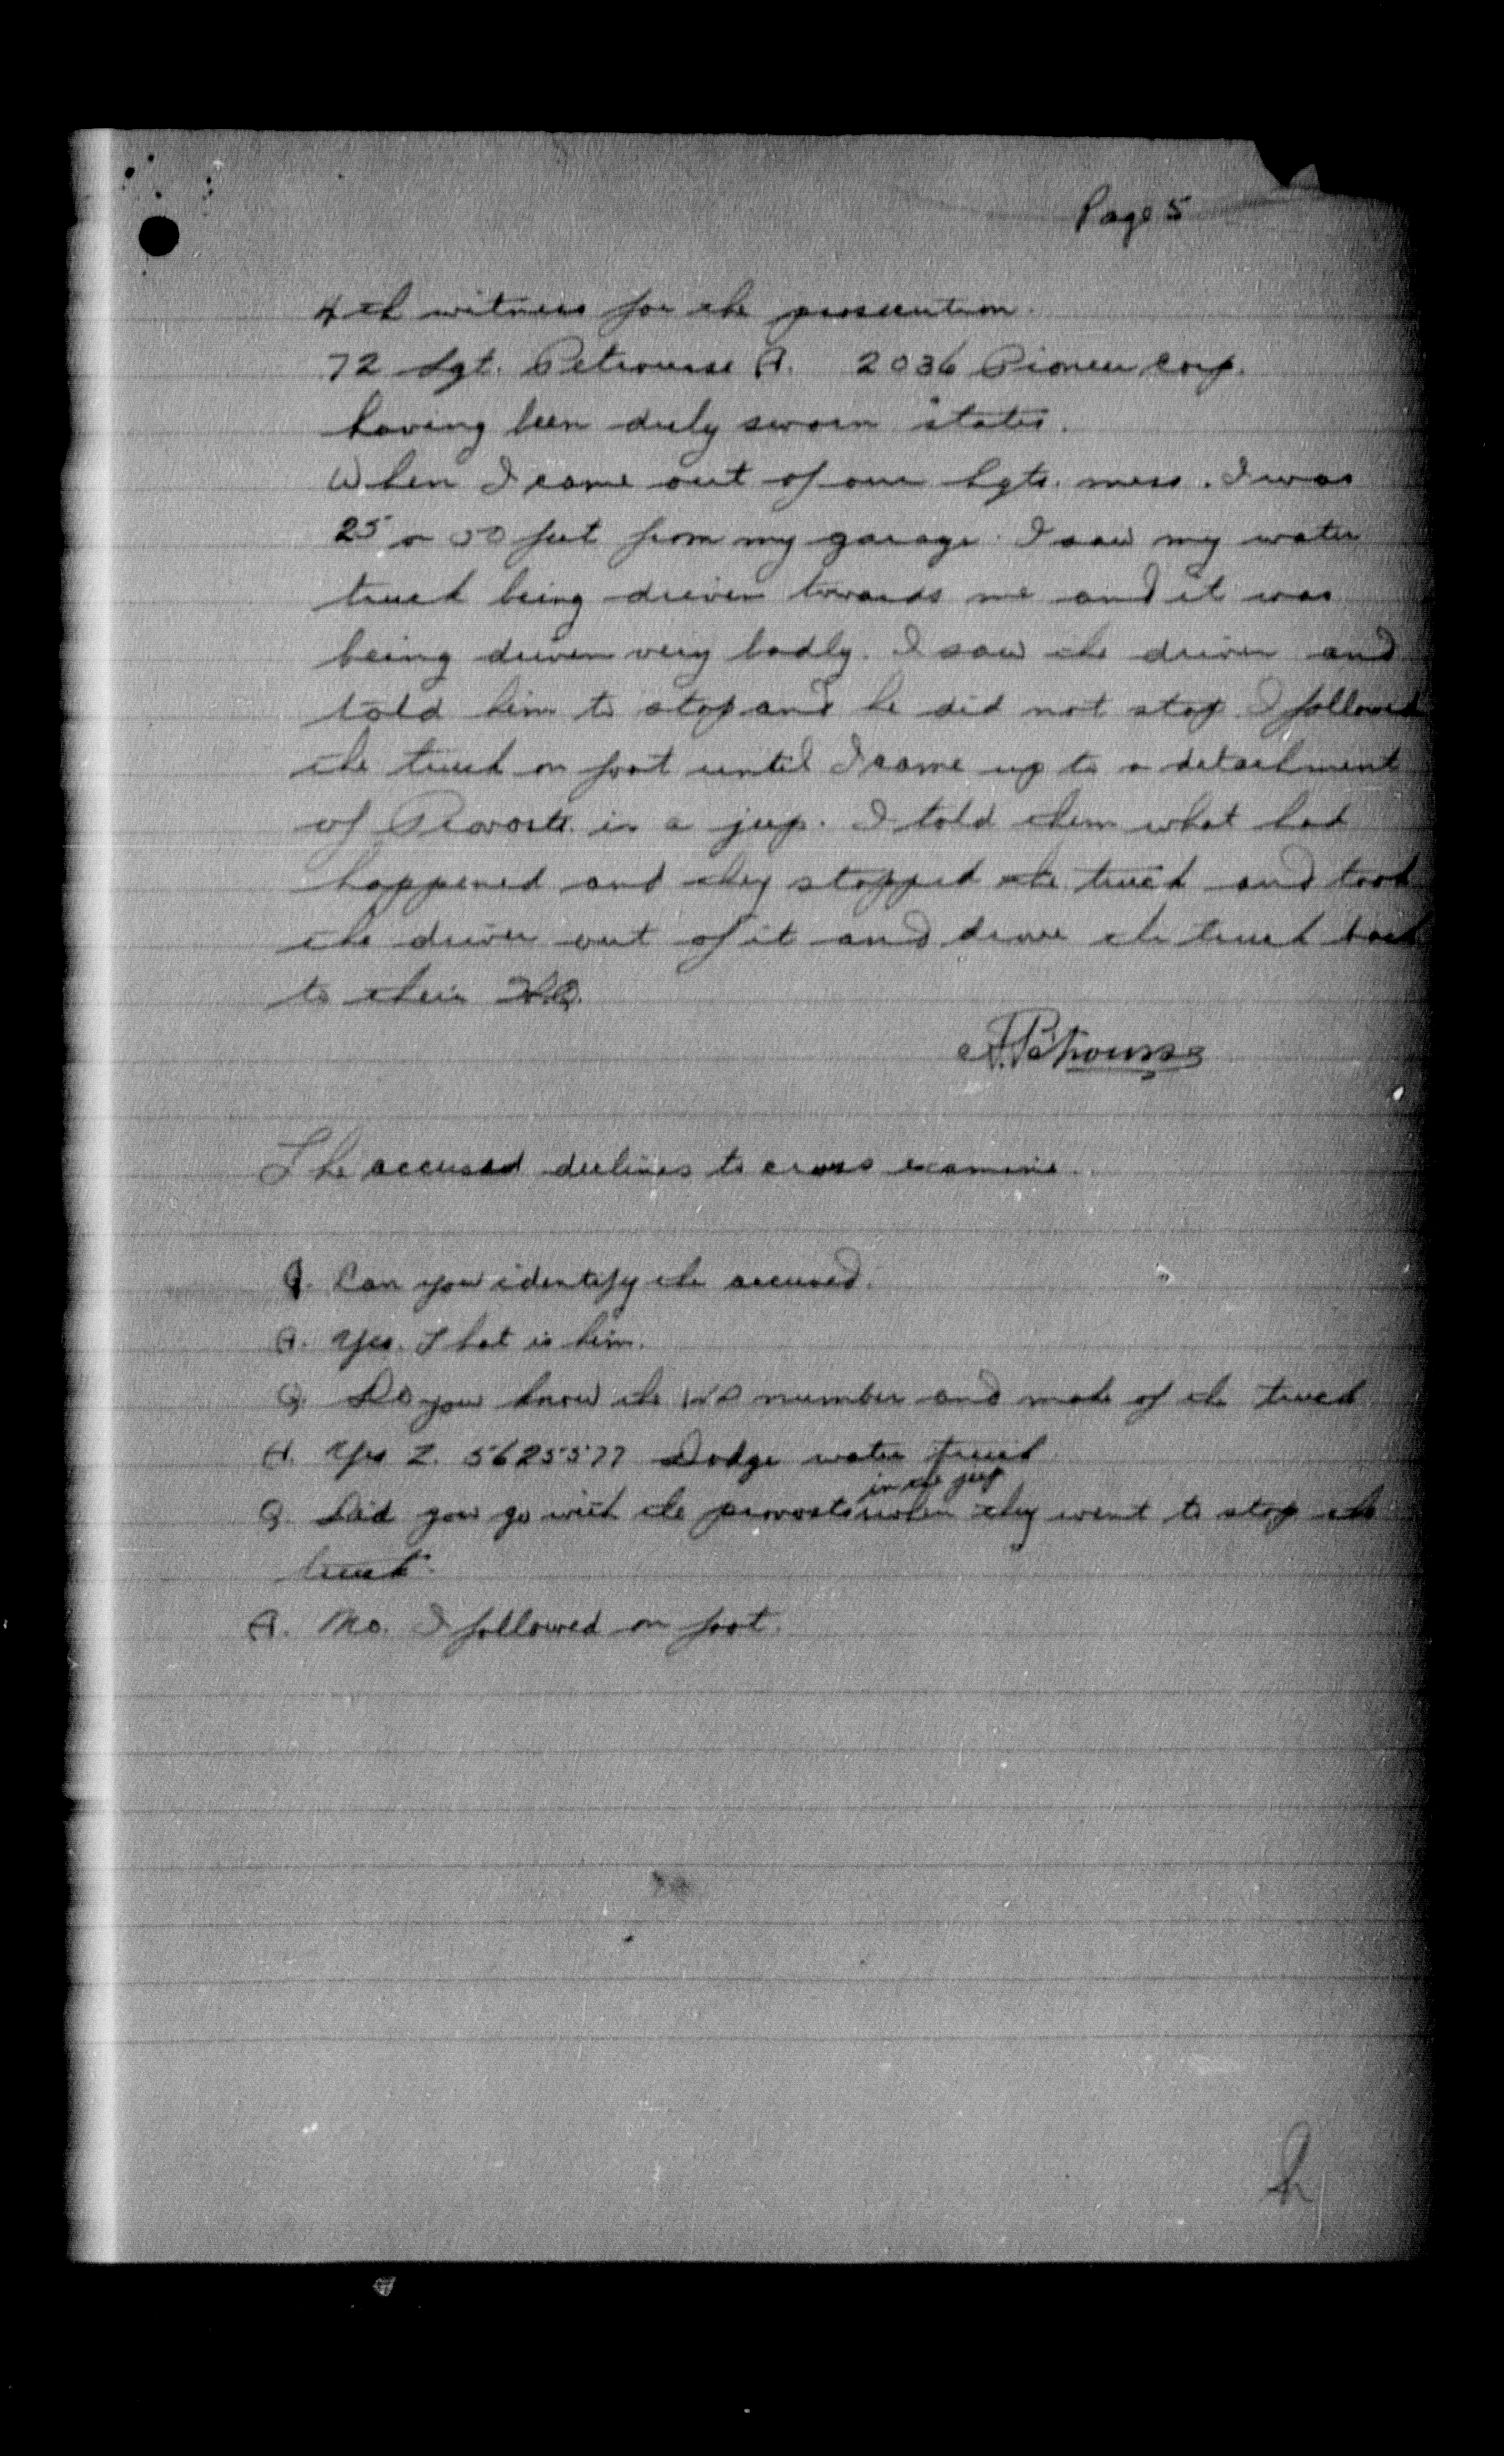 Page 5
4th witness for the prosecution.
72 Sgt. Petrousse A. 2036 Pioneer Corp.
having been duly sworn states.
When I came out of our Sgts. mess. I was
25 or 50 feet from my garage. I saw my water
truck being driven towards me and it was
being driven very badly. I saw the driver and
told him to stop and he did not stop. I followed
the truck on foot until I came up to a detachment
of Provosts in a jeep. I told them what had
happened and they stopped the truck and took
the driver out of it and drove the truck back
to their H.Q.
A. Petrousse
The accused declines to cross examine.
Q. Can you identify the accused.
A. Yes. That is him.
Q. Do you know the WD number and make of the truck
A. Yes Z. 5625577 Dodge water truck
in the jeep
Q. Did you go with the provosts when they went to stop the
truck.
A. No. I followed on foot.